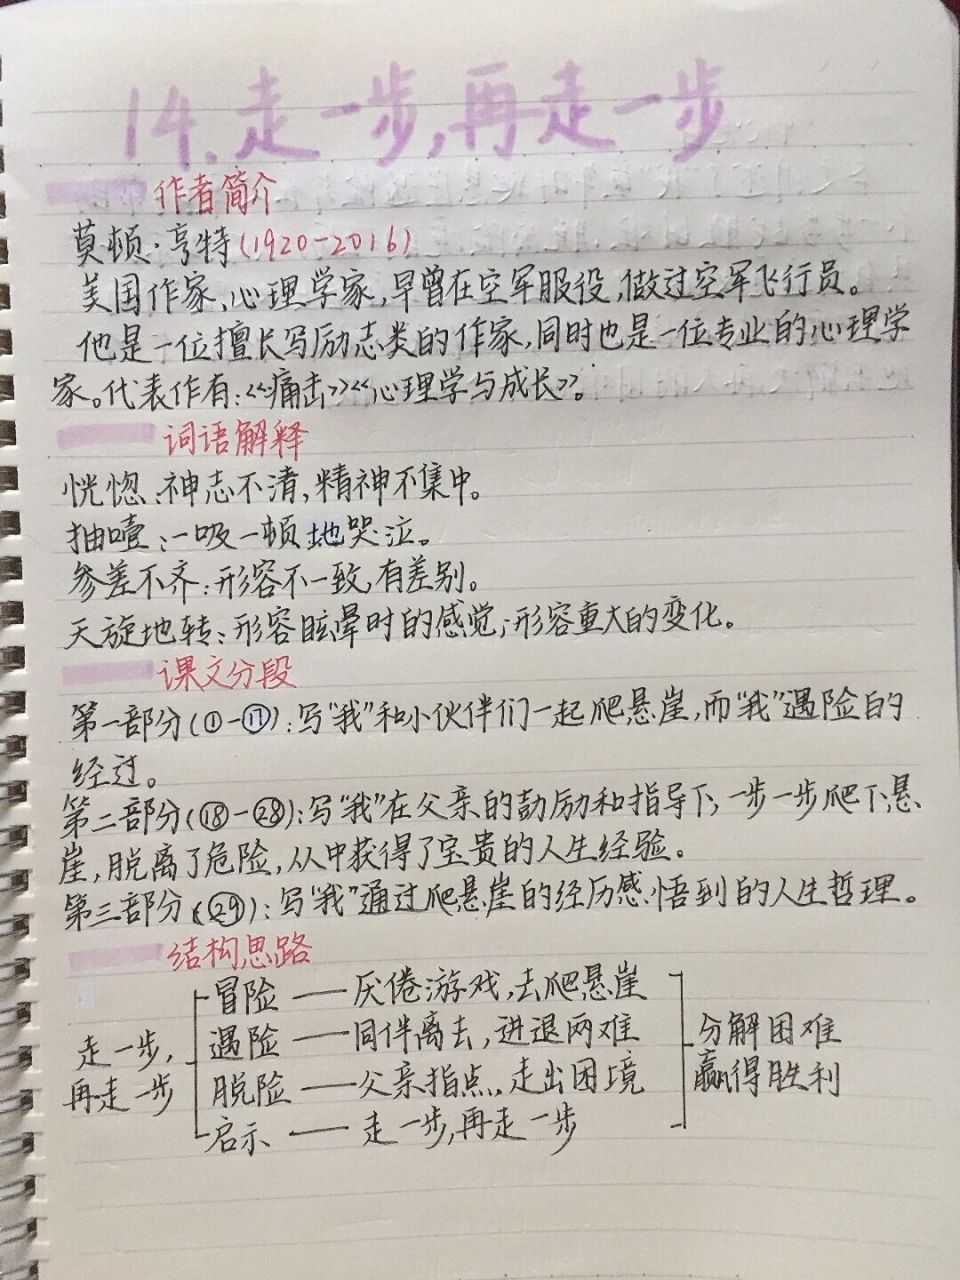 14.走一步,再走一步
作者简介
莫顿·亨特(1920-2016)
美国作家、心理学家,早曾在空军服役,做过空军飞行员。
他是一位擅长写励志类的作家,同时也是一位专业的心理学
家。代表作有:《痛击》《心理学与成长》。
词语解释
恍惚:神志不清,精神不集中。
抽噎:一吸一顿地哭泣。
参差不齐:形容不一致,有差别。
天旋地转:形容眩晕时的感觉;形容重大的变化。
课文分段
第一部分(①-⑰):写“我”和小伙伴们一起爬悬崖,而“我”遇险的
经过。
第二部分(⑱-㉘):写“我”在父亲的劝励和指导下,一步一步爬下悬
崖,脱离了危险,从中获得了宝贵的人生经验。
第三部分(㉙):写“我”通过爬悬崖的经历感悟到的人生哲理。
结构思路
走一步,
再走一步
冒险——厌倦游戏,去爬悬崖
遇险——同伴离去,进退两难
脱险——父亲指点,走出困境
启示——走一步,再走一步
分解困难
赢得胜利